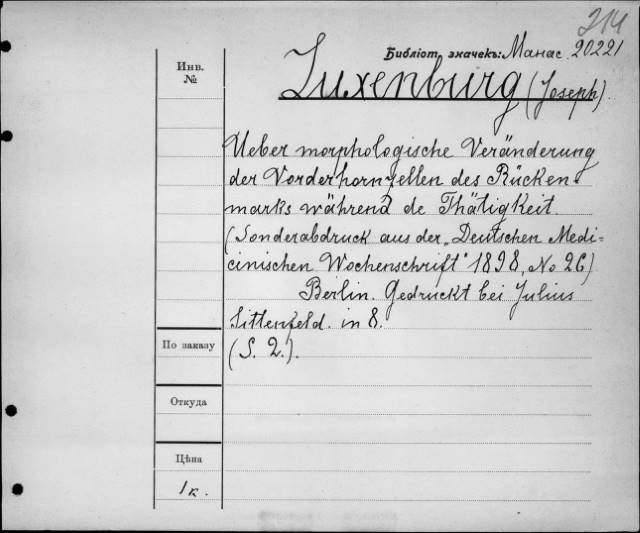 214
Библіот. значекъ: Манас. 20221
Инв. №
Luxenburg (Joseph).
Ueber morphologische Veränderung
der Vorderhornzellen des Rücken-
marks während de Thätigkeit.
(Sonderabdruck aus der „Deutschen Medi-
cinischen Wochenschrift" 1898, No 26)
Berlin. Gedruckt bei Julius
Sittenfeld. in 8.
По заказу
(S. 2.).
Откуда
Цѣна
1 к.